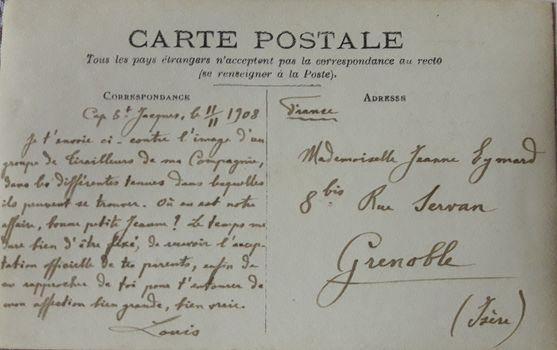 CARTE POSTALE
Tous les pays étrangers n'acceptent pas la correspondance au recto
(se renseigner à la Poste).
CORRESPONDANCE
Cap St Jacques, le 11/11 1908
Je t'envoie ci-contre l'image d'un
groupe de tirailleurs de ma Compagnie,
dans les différentes tenues dans lesquelles
ils peuvent se trouver. Où en est notre
affaire, bonne petite Jeanne? Le temps me
dure bien d'être fixé, de recevoir l'accep-
tation officielle de tes parents, enfin de
me rapprocher de toi pour t'entourer de
mon affection bien grande, bien vraie.
Louis
ADRESSE
France
Mademoiselle Jeanne Eymard
8 bis Rue Servan
Grenoble
(Isère)